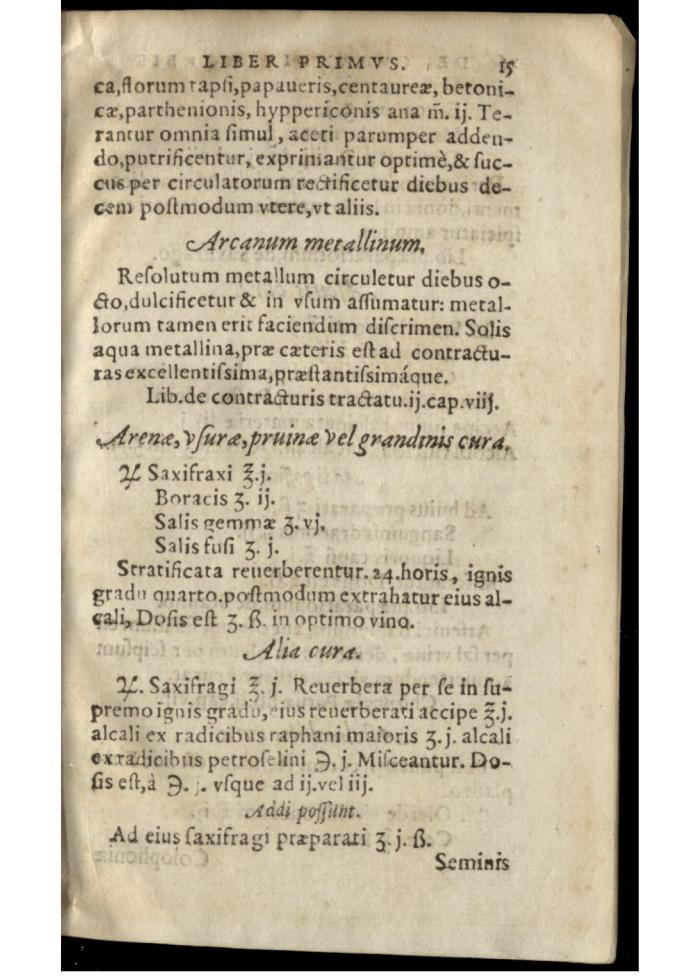 LIBER PRIMVS. 15
ca,florum tapſi,papaueris,centaureæ, betoni-
cæ,parthenionis, hyppericonis ana m̃. ij. Te-
rantur omnia ſimul, aceti parumper adden-
do,putrificentur, exprimantur optimè,& ſuc-
cus per circulatorum rectificetur diebus de-
cem poſtmodum vtere,vt aliis.
Arcanum metallinum.
Reſolutum metallum circuletur diebus o-
cto,dulcificetur & in vſum aſſumatur: metal-
lorum tamen erit faciendum diſcrimen. Solis
aqua metallina,præ cæteris eſt ad contractu-
ras excellentiſsima,præſtantiſsimáque.
Lib.de contracturis tractatu.ij.cap.viij.
Arenæ, vſuræ,pruinæ vel grandinis cura.
♃ Saxifraxi ℥.j.
Boracis ʒ. ij.
Salis gemmæ ʒ. vj.
Salis fuſi ʒ. j.
Stratificata reuerberentur. 24.horis, ignis
gradu quarto.poſtmodum extrahatur eius al-
cali, Doſis eſt ʒ. ß. in optimo vino.
Alia cura.
♃. Saxifragi ℥. j. Reuerbera per ſe in ſu-
premo ignis gradu,eius reuerberati accipe ℥.j.
alcali ex radicibus raphani maioris ʒ.j. alcali
ex radicibus petroſelini ℈. j. Miſceantur. Do-
ſis eſt,à ℈. j. vſque ad ij.vel iij.
Addi poſſunt.
Ad eius ſaxifragi præparati ʒ. j. ß.
Seminis